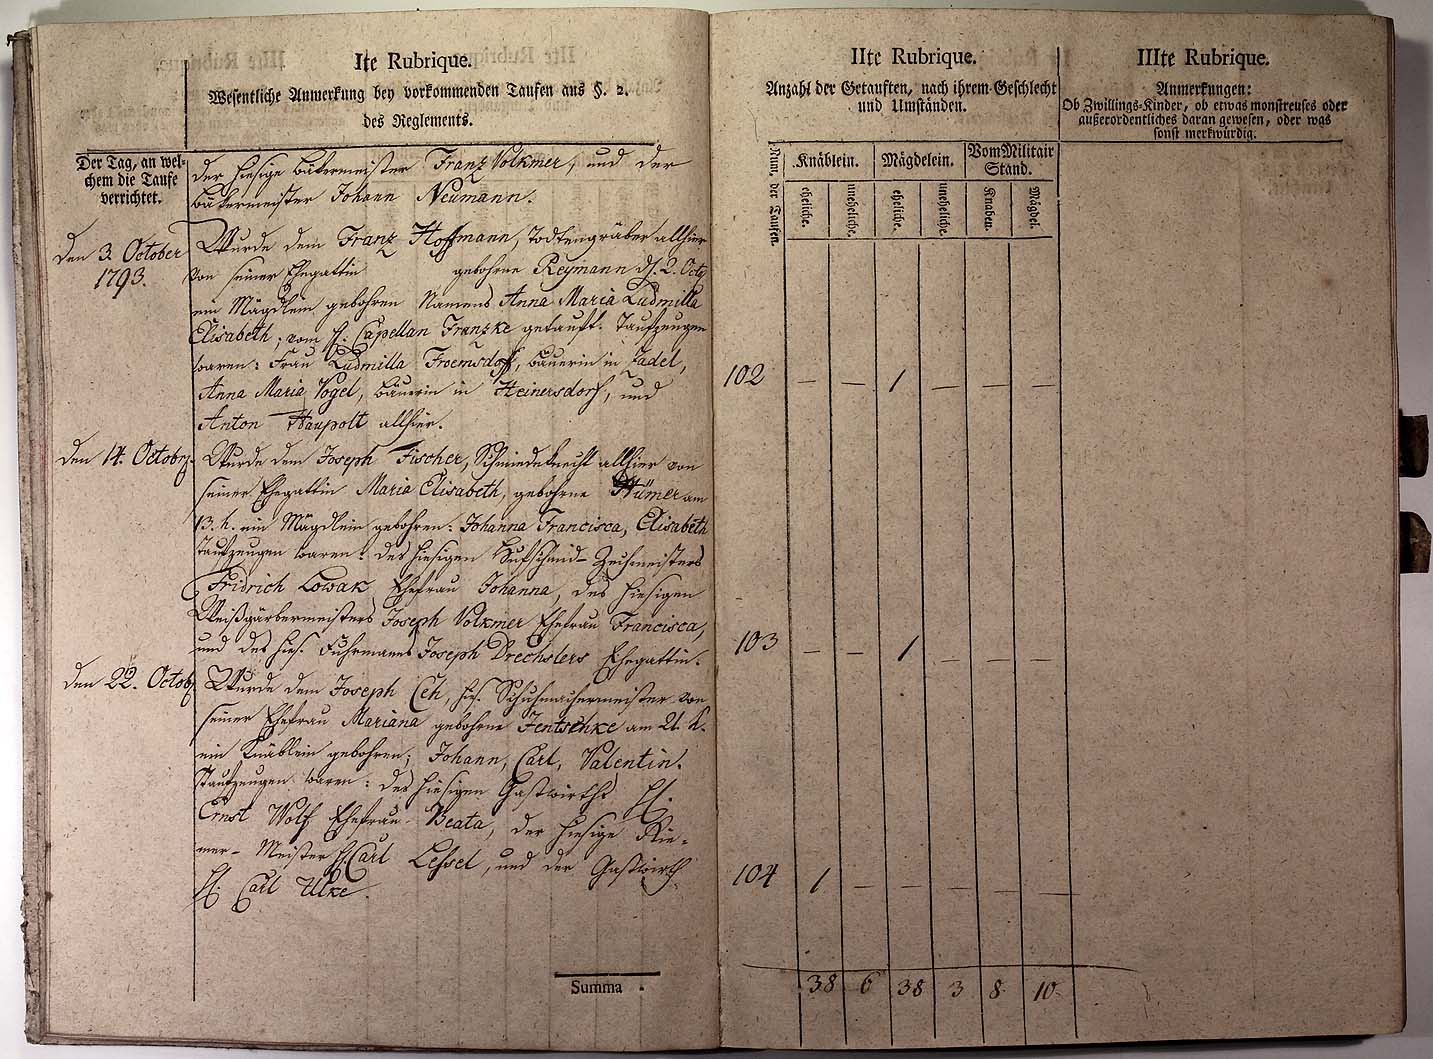 Ite Rubrique.
Wesentliche Anmerkung bey vorkommenden Taufen aus §. 2.
des Reglements.
Der Tag, an wel-
chem die Taufe
verrichtet.
der hiesige Bäkermeister Franz Volkmer, und der
Bäkermeister Johann Neümann.
den 3. October
1793.
Wurde dem Franz Hoffmann, Todtengräber allhier
von seiner Ehegattin gebohrne Reymann d. 2. Octbr
ein Mägdlein gebohren Namens Anna Maria Ludmilla
Elisabeth, vom H. Capellan Franzke getauft. Taufzeugen
waren: Frau Ludmilla Froemsdoff, Bäuerin in Zadel,
Anna Maria Vogel, Bäuerin in Heinersdorf, und
Anton Haupolt allhier.
den 14. Octobr
Wurde dem Joseph Fischer, Schmiedeknecht allhier von
seiner Ehegattin Maria Elisabeth, gebohrne am
13. h. ein Mägdlein gebohren: Johanna Francisca, Elisabeth
Taufzeugen waren: des hiesigen Hufschmid-Zechmeisters
Fridrich Lowak Ehefrau Johanna, des hiesigen
Weißgärbermeisters Joseph Volkmer Ehefrau Francisca,
und des hies. Fuhrmanns Joseph Drechslers Ehegattin.
den 22. Octob
Wurde dem Joseph Ceh, hies. Schuhmachermeister von
seiner Ehefrau Mariana gebohrne Jentschke am 21. h.
ein Knäblein gebohren; Johann, Carl, Valentin.
Taufzeugen waren: des hiesigen Gastwirths H.
Ernst Wolf Ehefrau Beata, der hiesige Rie-
mer-Meister H. Carl Lessel, und der Gastwirth
H. Carl Ulke.
Summa
IIte Rubrique.
Anzahl der Getauften, nach ihrem Geschlecht
und Umständen.
Num. der Taufen.
Knäblein.
Mägdelein.
Vom Militair
Stand.
eheliche.
uneheliche.
eheliche.
uneheliche.
Knaben.
Mägdel.
102 — — 1 — — —
103 — — 1 — — —
104 1 — — — — —
38 6 38 3 8 10
IIIte Rubrique.
Anmerkungen:
Ob Zwillings-Kinder, ob etwas monstreuses oder
außerordentliches daran gewesen, oder was
sonst merkwürdig.